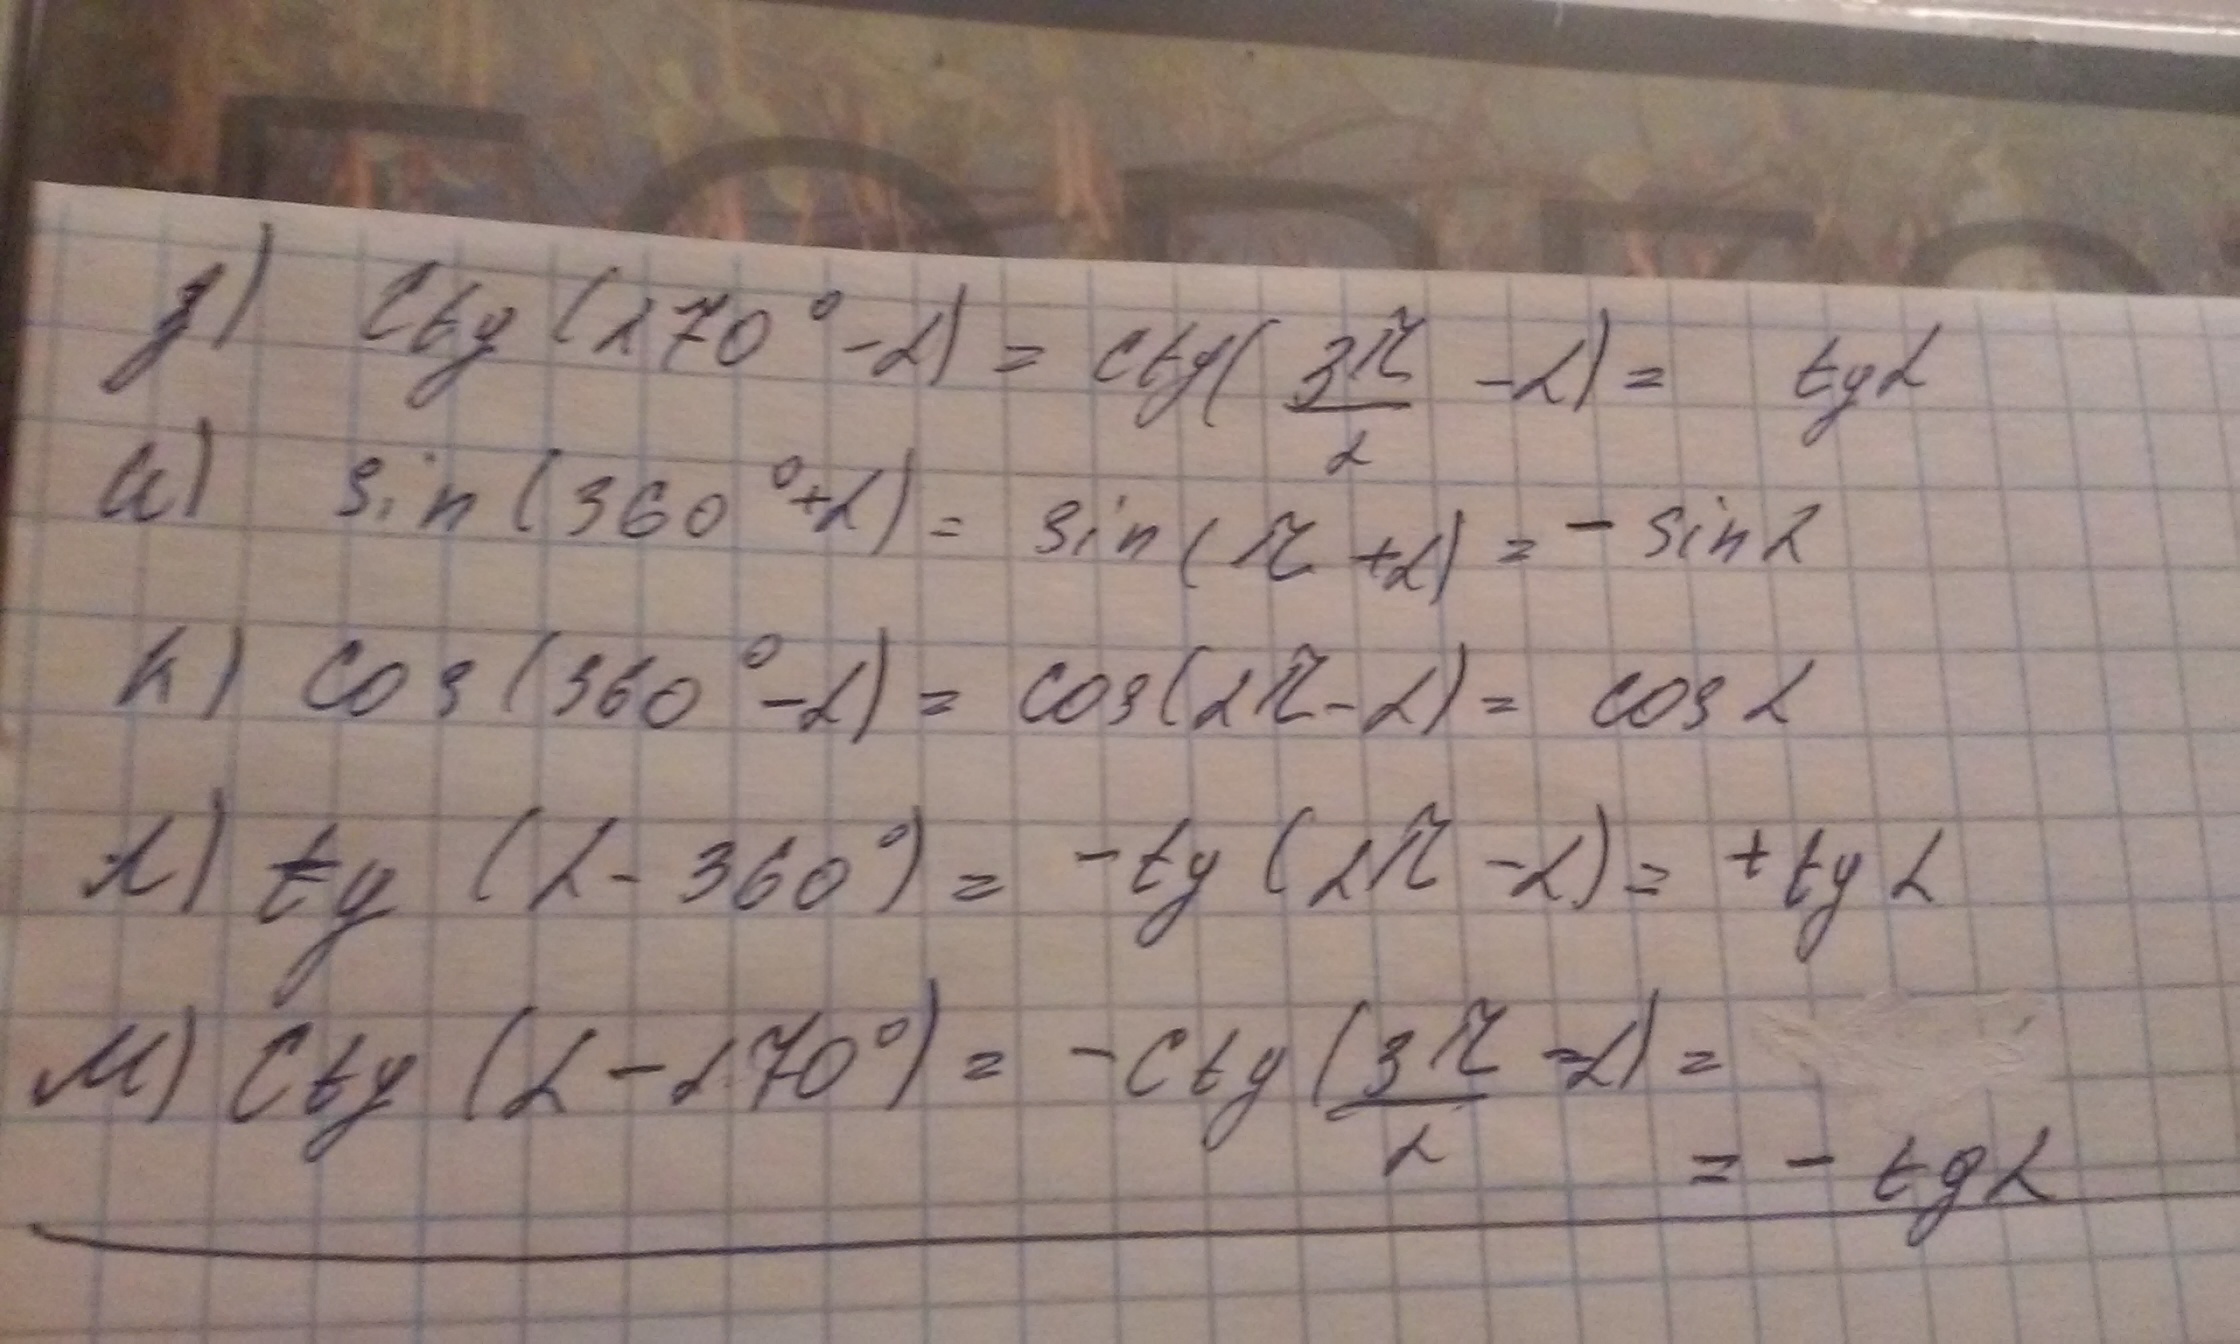 з) ctg (270° - α) = ctg( 3π/2 - α) = tg α
и) sin (360° + α) = sin( π + α) = - sin α
к) cos (360° - α) = cos(2π - α) = cos α
л) tg (α - 360°) = - tg (2π - α) = + tg α
м) ctg (α - 270°) = - ctg (3π/2 - α) =
= - tg α